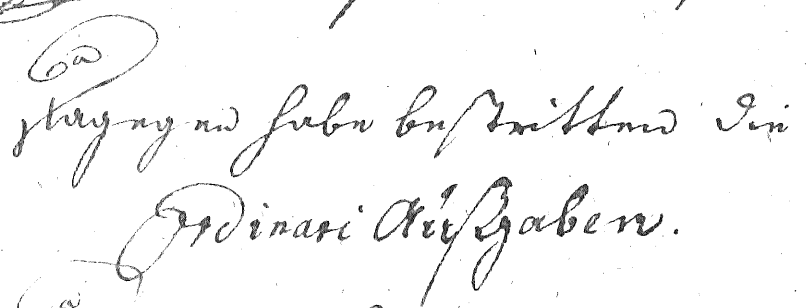 Dagegen habe bestritten die
Ordinari Außgaben.